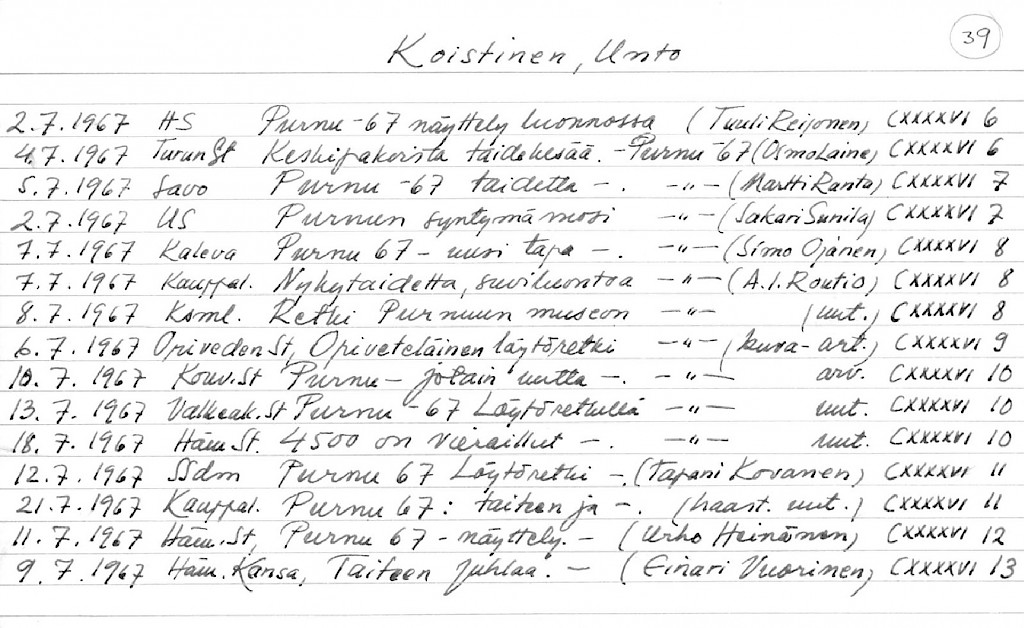 39
Koistinen, Unto
2.7.1967 HS Purnu -67 näyttely luonnossa (Tuuli Reijonen) CXXXXVI 6
4.7.1967 Turun St Keskipakoista taidekesää. - Purnu -67 (Osmo Laine) CXXXXVI 6
5.7.1967 Savo Purnu -67 taidetta -. -"- (Martti Ranta) CXXXXVI 7
2.7.1967 US Purnun syntymävuosi -"- (Sakari Sunila) CXXXXVI 7
7.7.1967 Kaleva Purnu 67 - uusi tapa -. -"- (Simo Ojanen) CXXXXVI 8
7.7.1967 Kauppal. Nykytaidetta, suviluontoa -"- (A.I. Routio) CXXXXVI 8
8.7.1967 Ksml. Retki Purnuun museon -"- (uut.) CXXXXVI 8
6.7.1967 Oriveden St, Oriveteläinen löytöretki -"- (kuva-art.) CXXXXVI 9
10.7.1967 Kouv.St Purnu - jotain uutta -. -"- arv. CXXXXVI 10
13.7.1967 Valkeak.St Purnu -67 Löytöretkellä -"- uut. CXXXXVI 10
18.7.1967 Häm St. 4500 on vieraillut -. -"- uut. CXXXXVI 10
12.7.1967 SSdm Purnu 67 Löytöretki -. (Tapani Kovanen) CXXXXVI 11
21.7.1967 Kauppal. Purnu 67: taiteen ja -. (haast. uut.) CXXXXVI 11
11.7.1967 Häm.St, Purnu 67 - näyttely. - (Urho Heinänen) CXXXXVI 12
9.7.1967 Häm. Kansa, Taiteen juhlaa. - (Einari Vuorinen) CXXXXVI 13